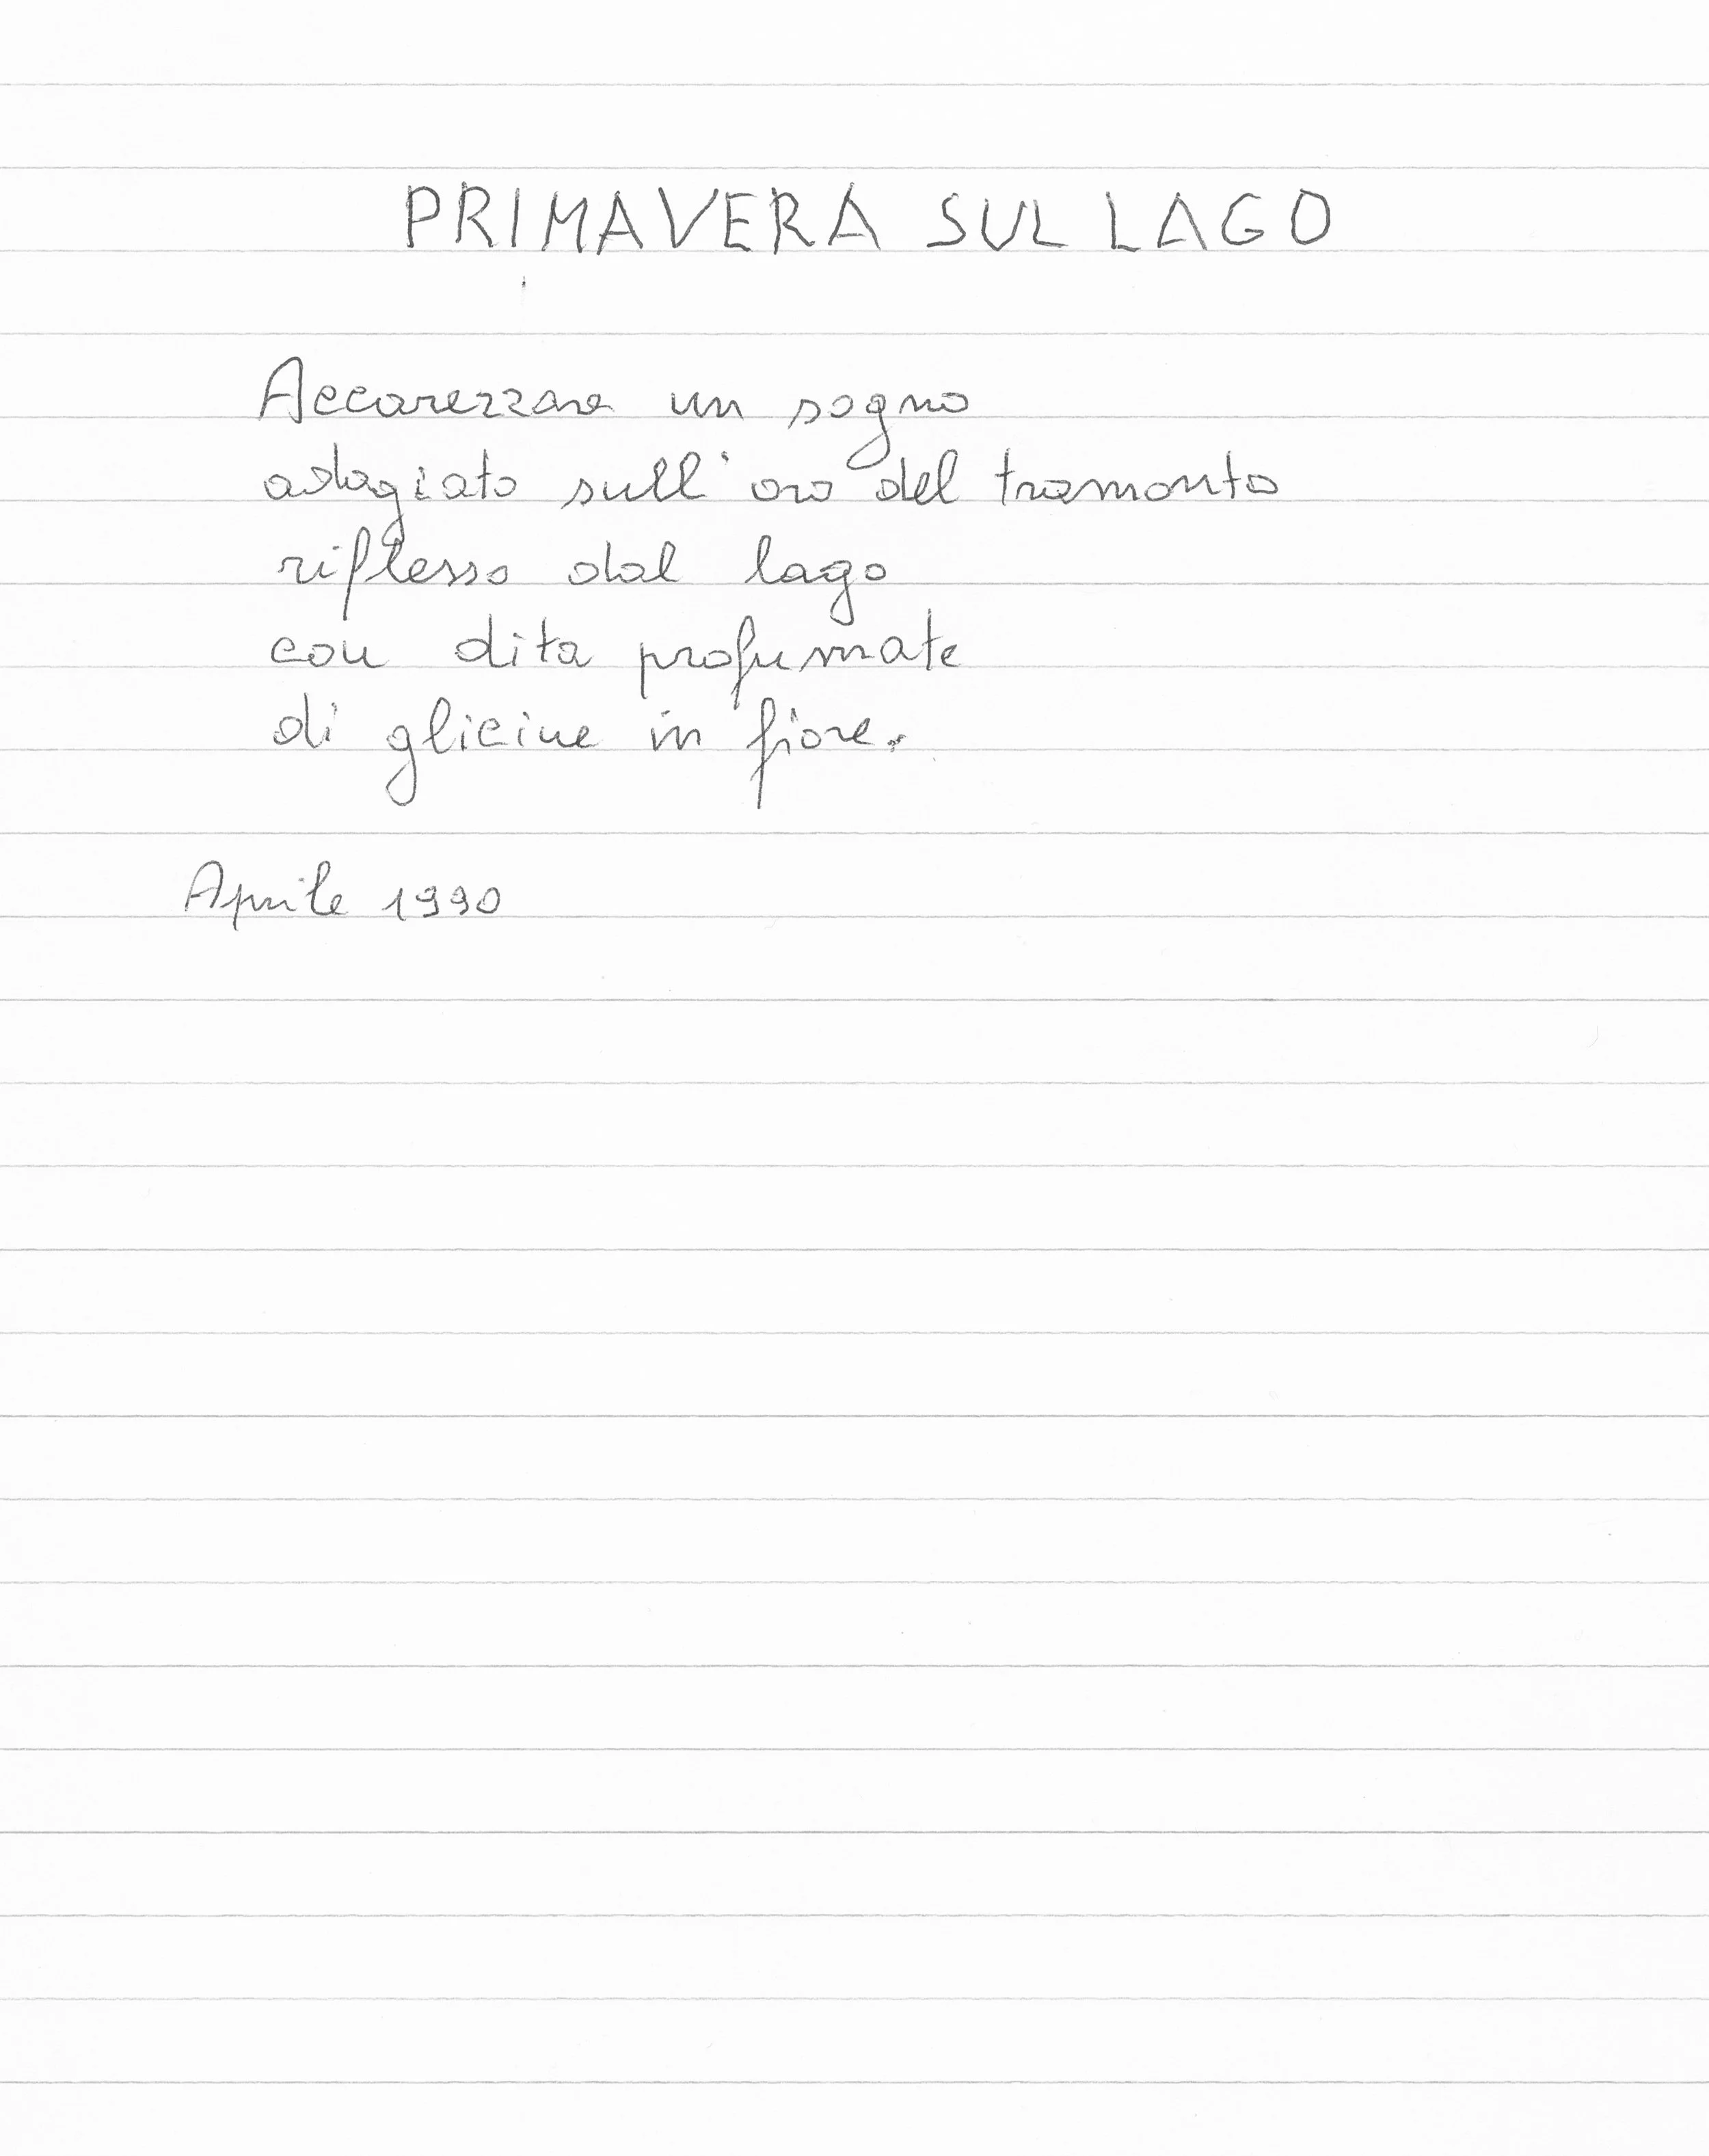 PRIMAVERA SUL LAGO
Accarezzare un sogno
adagiato sull'oro del tramonto
riflesso dal lago
con dita profumate
di glicine in fiore.
Aprile 1990